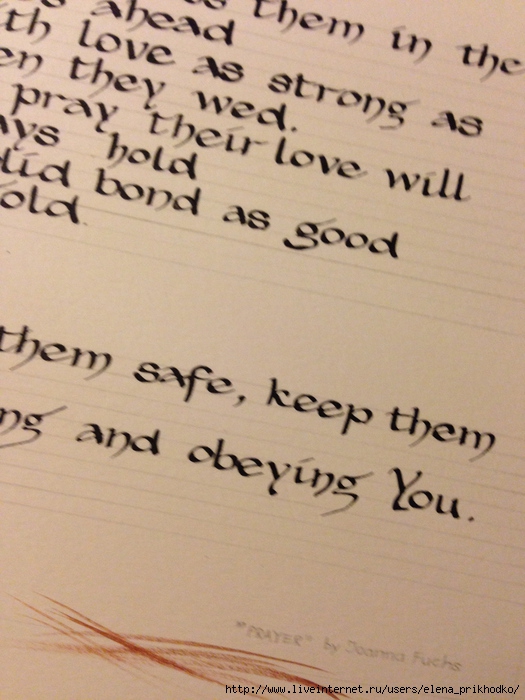 them in the
ahead
love as strong as
they wed.
pray their love will
hold
bond as good
them safe, keep them
and obeying You.
"PRAYER" by Joanna Fuchs
http://www.liveinternet.ru/users/elena_prikhodko/